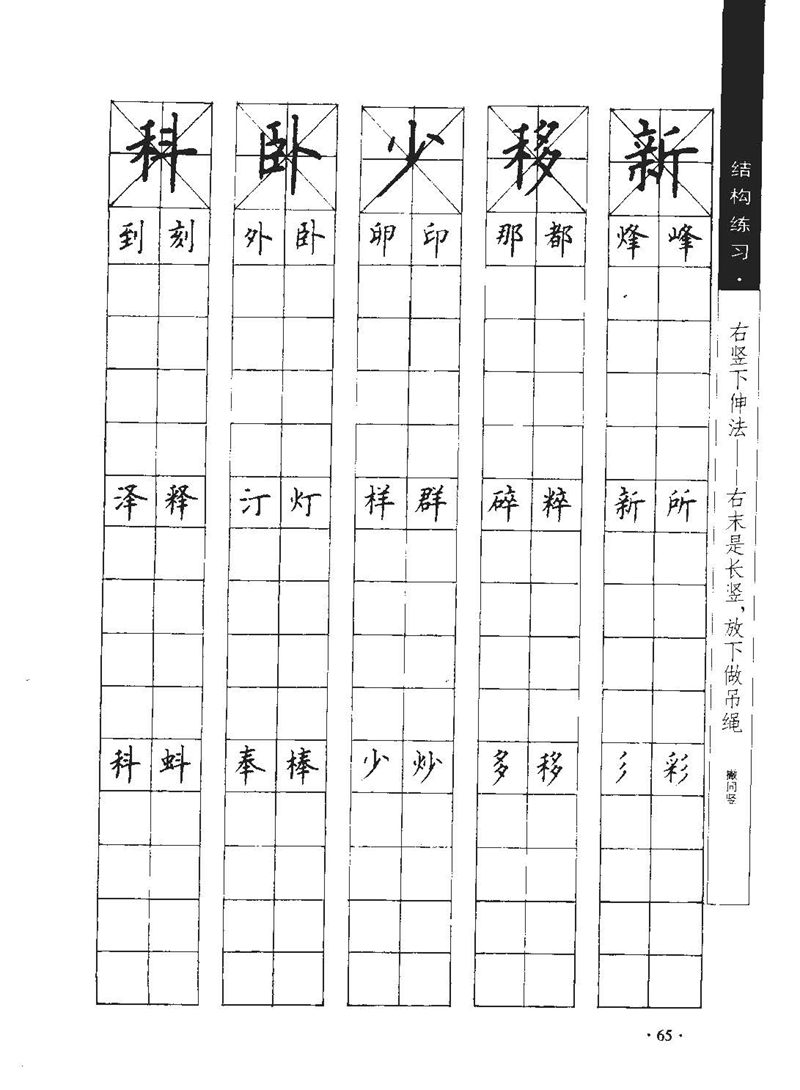 科 卧 少 移 新
到 刻 外 卧 卯 印 那 都 烽 峰
泽 释 汀 灯 样 群 碎 粹 新 所
科 蚪 奉 棒 少 炒 多 移 彡 彩
结构练习·
右竖下伸法——右末是长竖，放下做吊绳
撇同竖
·65·